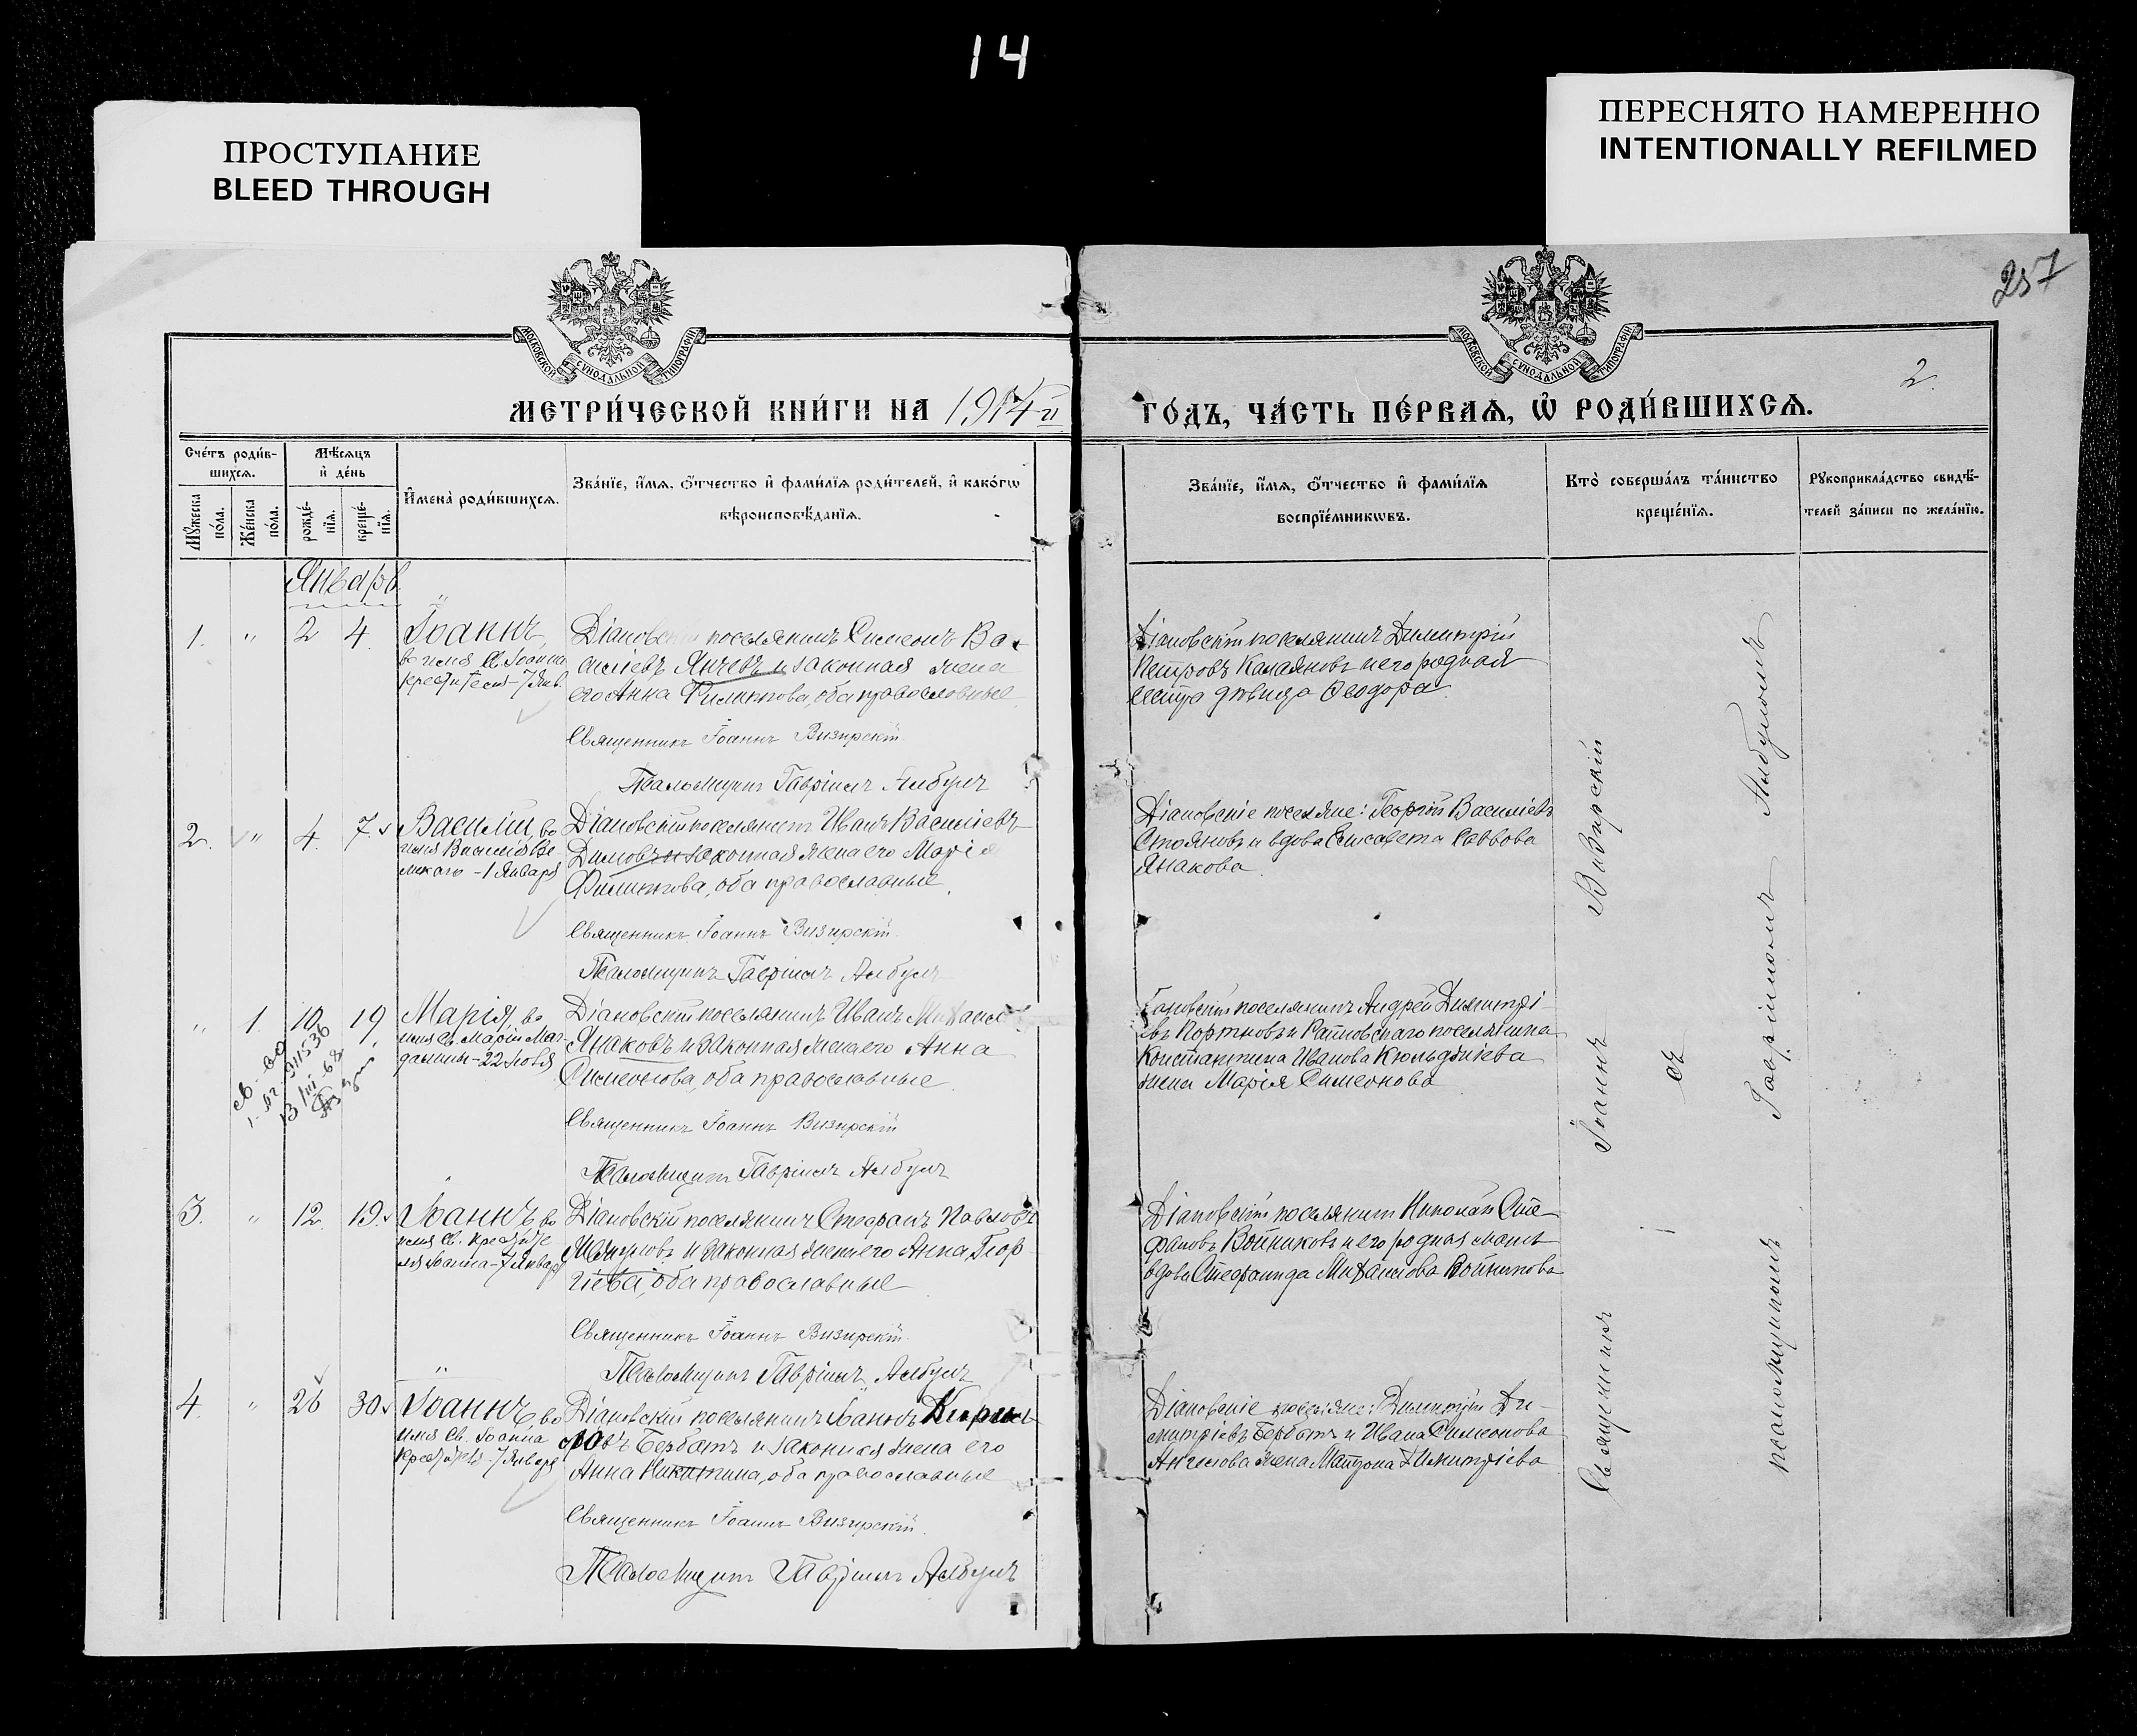 14
ПРОСТУПАНИЕ
BLEED THROUGH
ПЕРЕСНЯТО НАМЕРЕННО
INTENTIONALLY REFILMED
257
МОСКОВСКОЙ СѴНОДАЛЬНОЙ ТИПОГРАФІИ
МОСКОВСКОЙ СѴНОДАЛЬНОЙ ТИПОГРАФІИ
2.
МЕТРИ́ЧЕСКОЙ КНИ́ГИ НА 1914й
ГО́ДЪ, ЧА́СТЬ ПЕ́РВАѦ, Ѡ РОДИ́ВШИХСѦ.
Сче́тъ роди́в-
шихсѧ.
Мѣ́сѧцъ
и де́нь
Мꙋ́жеска
по́ла.
Же́нска
по́ла.
рожде́-
нїѧ.
креще́-
нїѧ.
Имена̀ роди́вшихсѧ.
Зва́нїе, и́мѧ, о́тчество и фами́лїѧ роди́телей, и како́гѡ
вѣроисповѣ́данїѧ.
Зва́нїе, и́мѧ, о́тчество и фами́лїѧ
воспрїе́мникѡвъ.
Кто̀ соверша́лъ та́инство
креще́нїѧ.
Рꙋкоприкла́дство свидѣ́-
телей за́писи по жела́нїю.
Январь
1. " 2 4 Іоаннъ,
во имя Св. Іоанна
Крестителя 7 Янв.
Діановскій поселянинъ Симеонъ Ва-
сильевъ Янчевъ и законная жена
его Анна Филиппова, оба православные
Священникъ Іоаннъ Визирскій
Псаломщикъ Гавріилъ Албулъ
Діановскій поселянинъ Димитрій
Петровъ Калаяновъ и его родная
сестра дѣвица Ѳеодора.
2. " 4. 7. Василій, во
имя Василія Ве-
ликаго - 1 Января
Діановскій поселянинъ Иванъ Васильевъ
Димовъ и законная жена его Марія
Филиппова, оба православные.
Священникъ Іоаннъ Визирскій
Псаломщикъ Гавріилъ Албулъ
Діановскіе поселяне: Георгій Васильевъ
Стояновъ и вдова Елисавета Саввова
Янакова.
" 1. 10 19 Марія, во
имя Св. Маріи Маг-
далины - 22 Іюля
св-во
911536
13/III-68
Діановскій поселянинъ Иванъ Михаилов
Янаковъ и законная жена его Анна
Симеонова, оба православные
Священникъ Іоаннъ Визирскій
Псаломщикъ Гавріилъ Албулъ
поселянинъ Андрей Димитрі-
евъ Портновъ и поселянина
Константина Иванова Кюльджіева
жена Марія Симеонова
3. " 12. 19. Іоаннъ, во
имя Св. Крестите
ля Іоанна - 7 Январ
Діановскій поселянинъ Стефанъ Павловъ
и законная жена его Анна Геор-
гіева, оба православные
Священникъ Іоаннъ Визирскій
Псаломщикъ Гавріилъ Албулъ
Діановскій поселянинъ Николай Сте-
фановъ Войниковъ и его родная мать
вдова Стефанида Михаилова Войникова
4. " 26 30. Іоаннъ, во
имя Св. Іоанна
Крестителя 7 Января
Діановскій поселянинъ Іоаннъ Кирил-
ловъ Бербатъ и законная жена его
Анна Никитина, оба православные
Священникъ Іоаннъ Визирскій.
Псаломщикъ Гавріилъ Албулъ
Діановскіе поселяне: Димитрій Ди-
митріевъ Бербатъ и Ивана Симеонова
Ангелова жена Матрона Димитріева
Священникъ Іоаннъ Визирскій
съ
псаломщикомъ Гавріиломъ Албуломъ